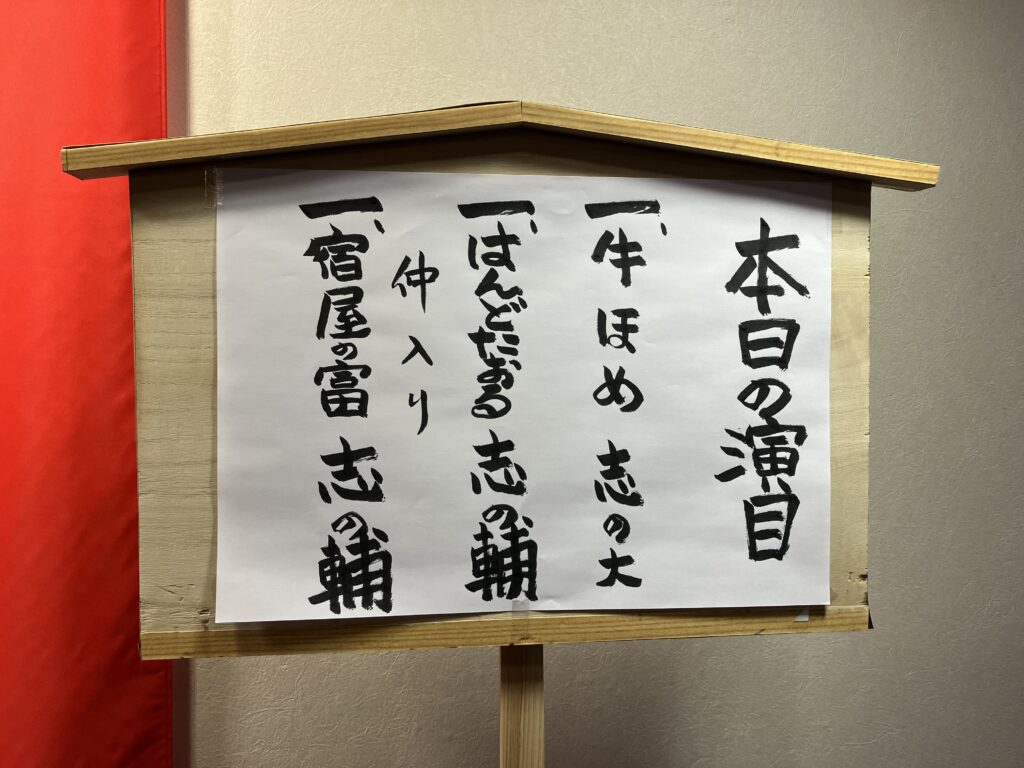 本日の演目
一、牛ほめ 志の大
一、はんどたおる 志の輔
仲入り
一、宿屋の富 志の輔